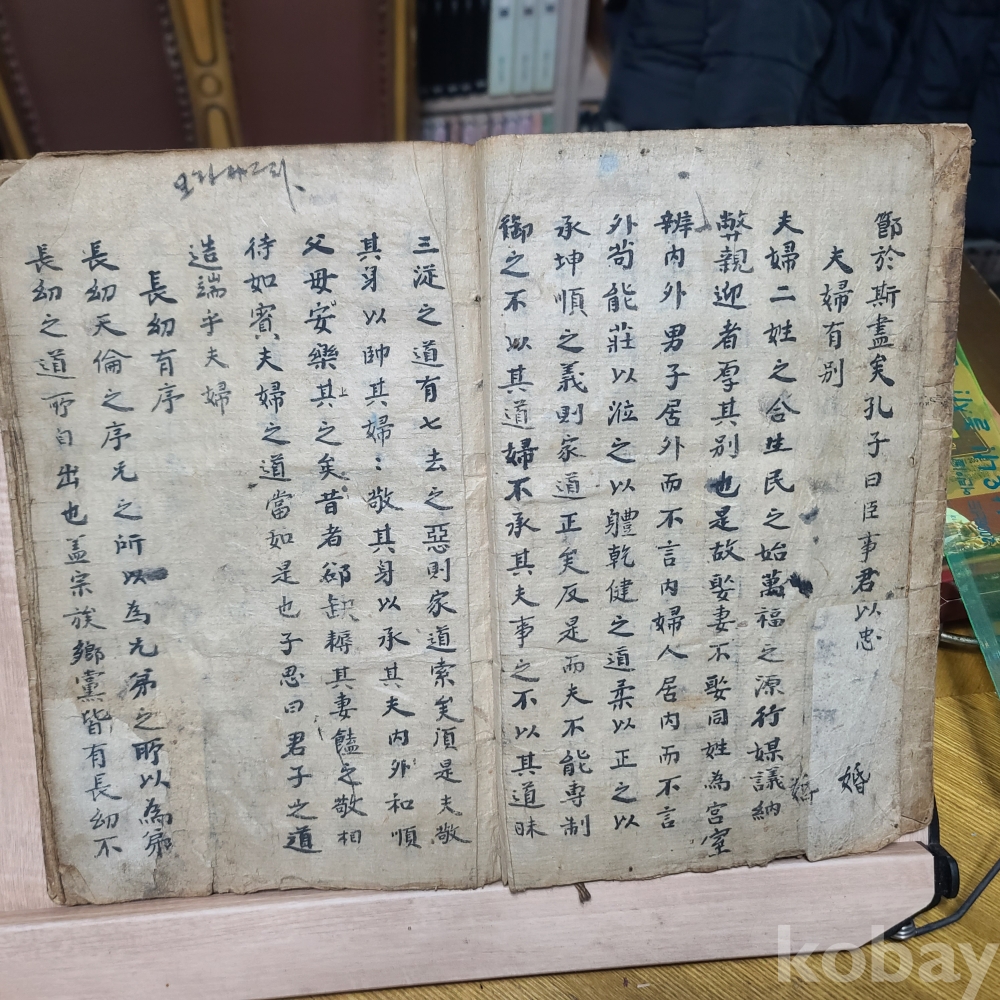 節於斯盡矣孔子曰臣事君以忠
婚
夫婦有別
夫婦二姓之合生民之始萬福之源行媒議納
弊親迎者厚其別也是故娶妻不娶同姓為宮室
辨內外男子居外而不言內婦人居內而不言
外苟能莊以涖之以軆乾健之道柔以正之以
承坤順之義則家道正矣反是而夫不能專制
御之不以其道婦不承其夫事之不以其道昧
三從之道有七去之惡則家道索矣須是夫敬
其身以帥其婦〻敬其身以承其夫內外和順
父母安樂其上之矣昔者郤缺耨其妻饁之敬相
待如賓夫婦之道當如是也子思曰君子之道
造端乎夫婦
長幼有序
長幼天倫之序兄之所以為兄弟之所以為弟
長幼之道所自出也盖宗族鄉黨皆有長幼不
kobay